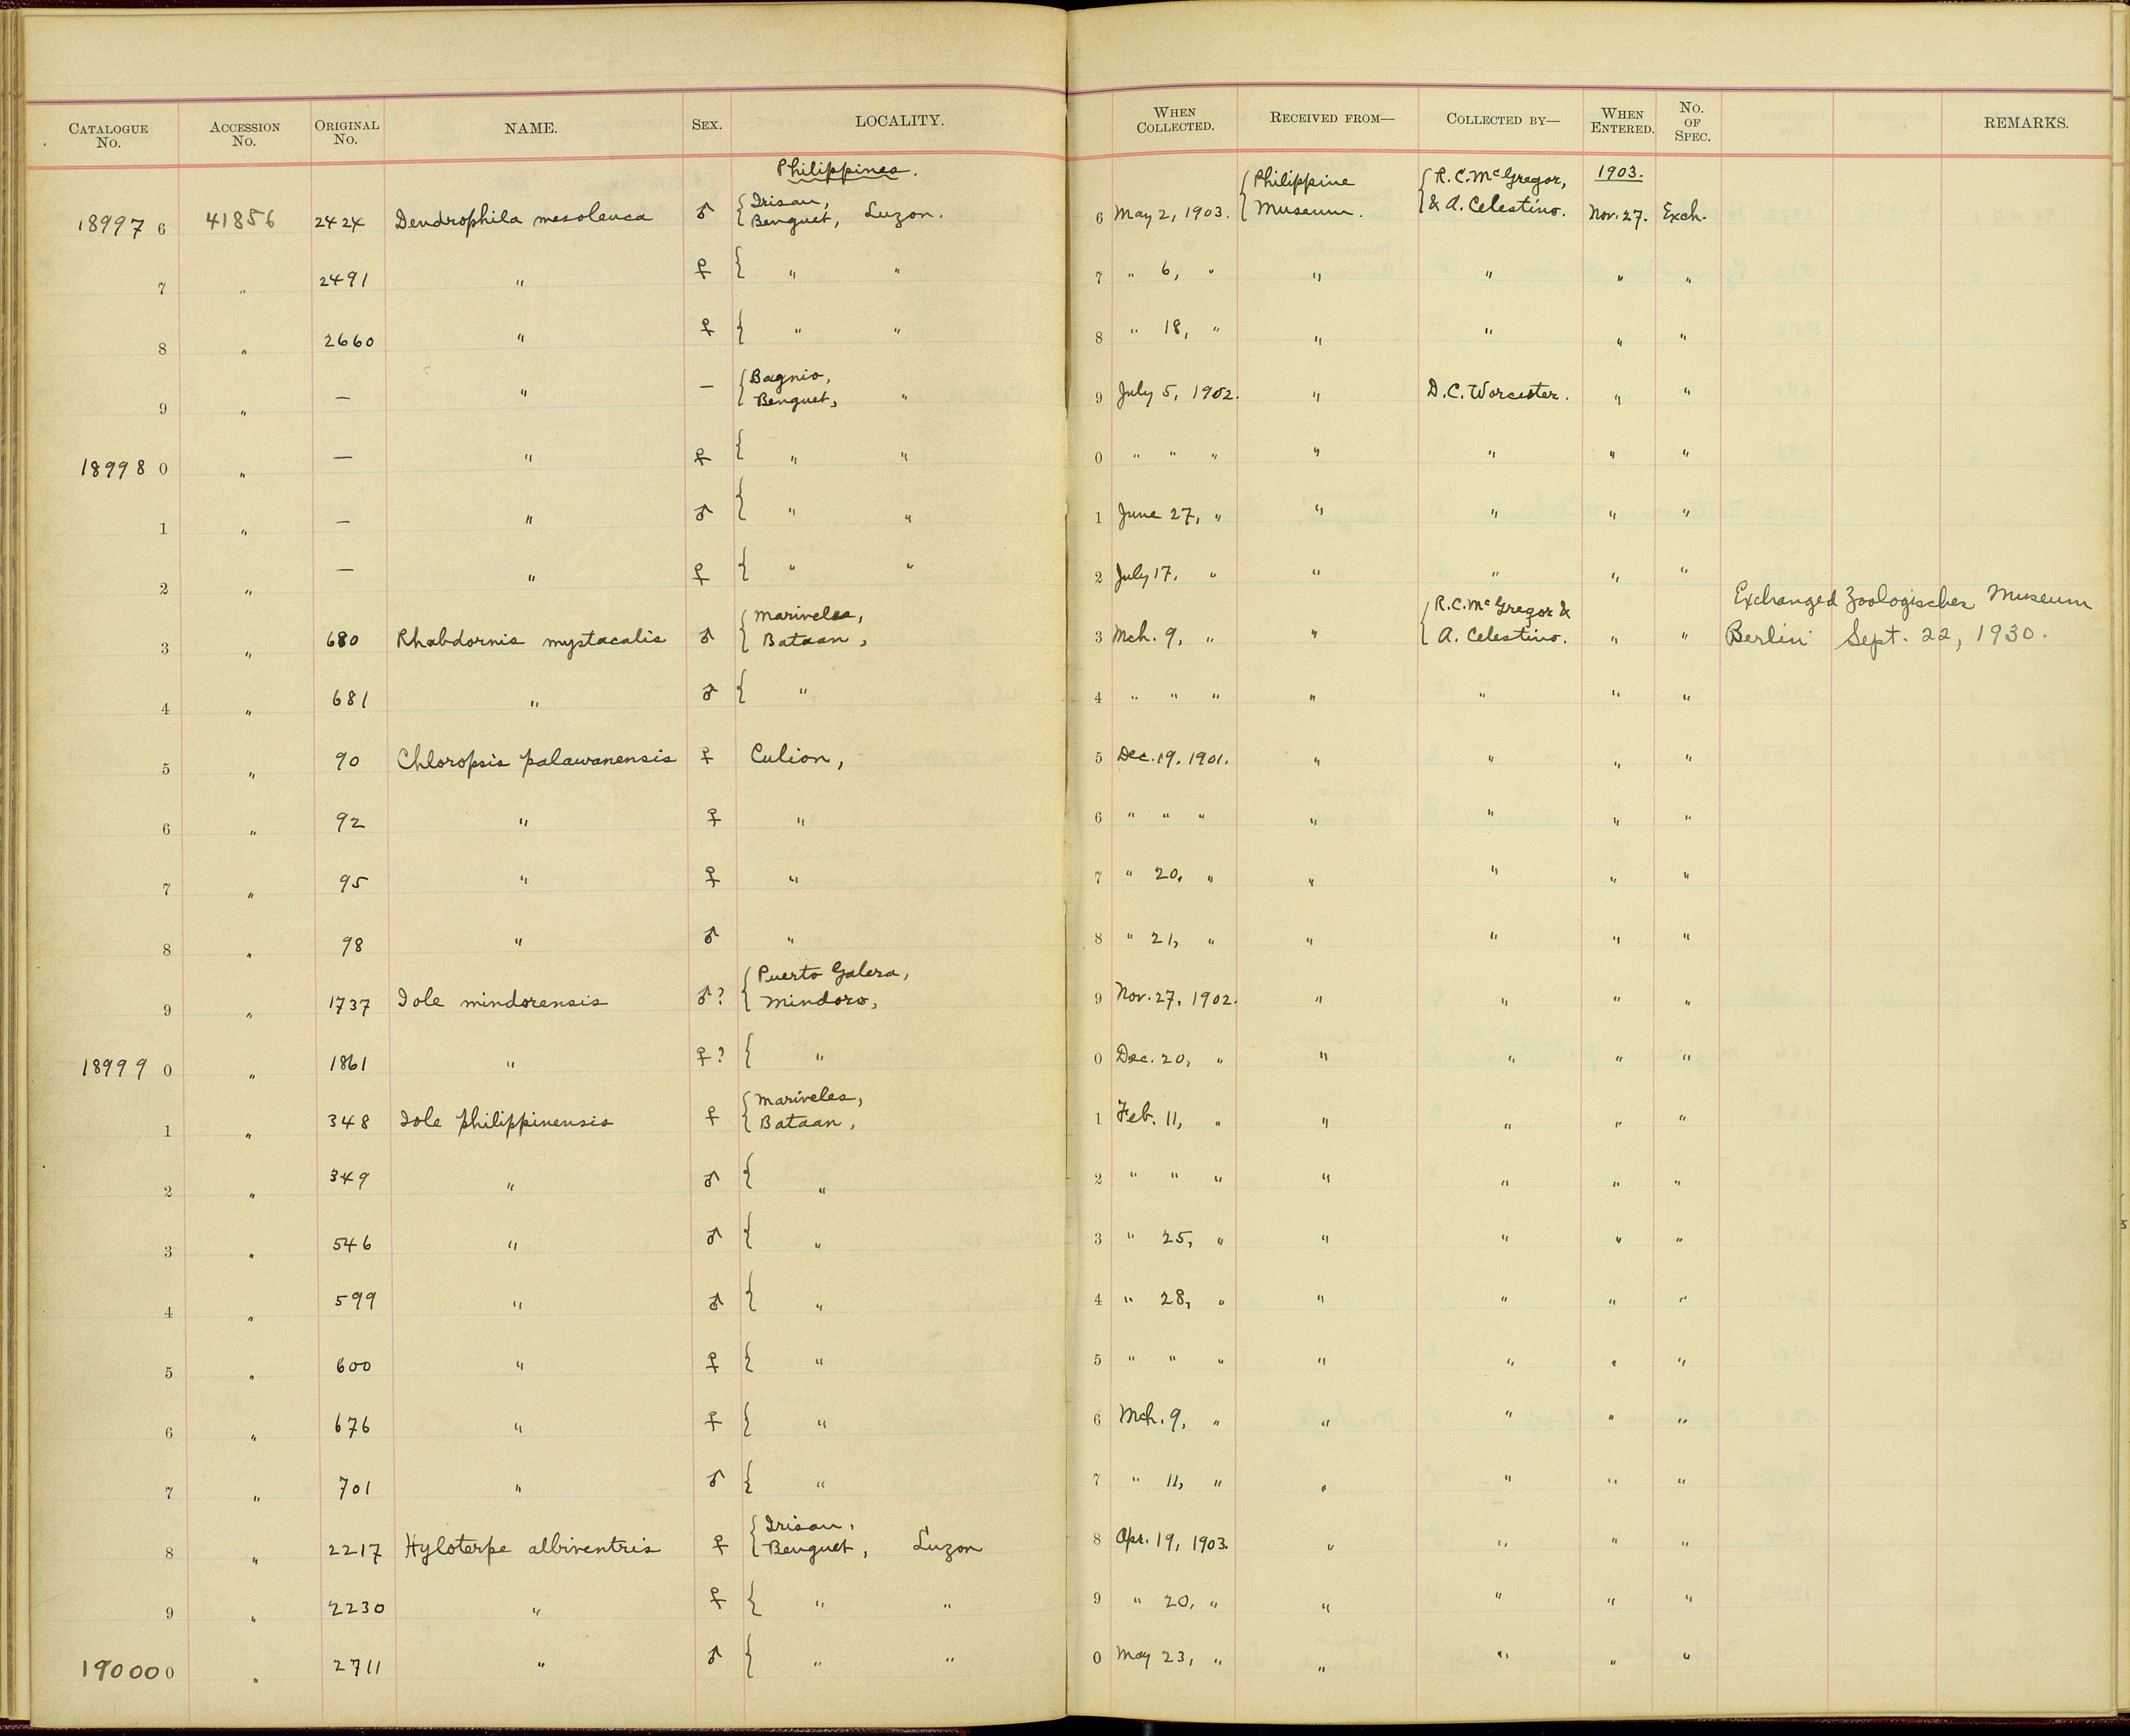 CATALOGUE No. ACCESSION No. ORIGINAL No. NAME. SEX. LOCALITY. WHEN COLLECTED. RECEIVED FROM— COLLECTED BY— WHEN ENTERED. No. OF SPEC. REMARKS.
Philippines. 1903.
18997 6 41856 2424 Dendrophila mesoleuca ♂ { Irisan, Benguet, Luzon. 6 May 2, 1903. { Philippine Museum. { R. C. McGregor, & A. Celestino. Nov. 27. Exch.
7 " 2491 " ♀ { " " 7 " 6, " " " " "
8 " 2660 " ♀ { " " 8 " 18, " " " " "
9 " — " — { Bagnio, Benguet, " 9 July 5, 1902. " D. C. Worcester. " "
18998 0 " — " ♀ { " " 0 " " " " " " "
1 " — " ♂ { " " 1 June 27, " " " " "
2 " — " ♀ { " " 2 July 17, " " " " "
3 " 680 Rhabdornis mystacalis ♂ { Mariveles, Bataan, 3 Mch. 9, " " { R. C. McGregor & A. Celestino. " " Exchanged Zoologisches Museum
Berlin Sept. 22, 1930.
4 " 681 " ♂ { " 4 " " " " " " "
5 " 90 Chloropsis palawanensis ♀ Culion, 5 Dec. 19, 1901. " " " "
6 " 92 " ♀ " 6 " " " " " " "
7 " 95 " ♀ " 7 " 20, " " " " "
8 " 98 " ♂ " 8 " 21, " " " " "
9 " 1737 Iole mindorensis ♂? { Puerto Galera, Mindoro, 9 Nov. 27, 1902. " " " "
18999 0 " 1861 " ♀? { " 0 Dec. 20, " " " " "
1 " 348 Iole philippinensis ♀ { Mariveles, Bataan, 1 Feb. 11, " " " " "
2 " 349 " ♂ { " 2 " " " " " " "
3 " 546 " ♂ { " 3 " 25, " " " " "
4 " 599 " ♂ { " 4 " 28, " " " " "
5 " 600 " ♀ { " 5 " " " " " " "
6 " 676 " ♀ { " 6 Mch. 9, " " " " "
7 " 701 " ♂ { " 7 " 11, " " " " "
8 " 2217 Hyloterpe albiventris ♀ { Irisan, Benguet, Luzon 8 Apr. 19, 1903. " " " "
9 " 2230 " ♀ { " " 9 " 20, " " " " "
19000 0 " 2711 " ♂ { " " 0 May 23, " " " " "